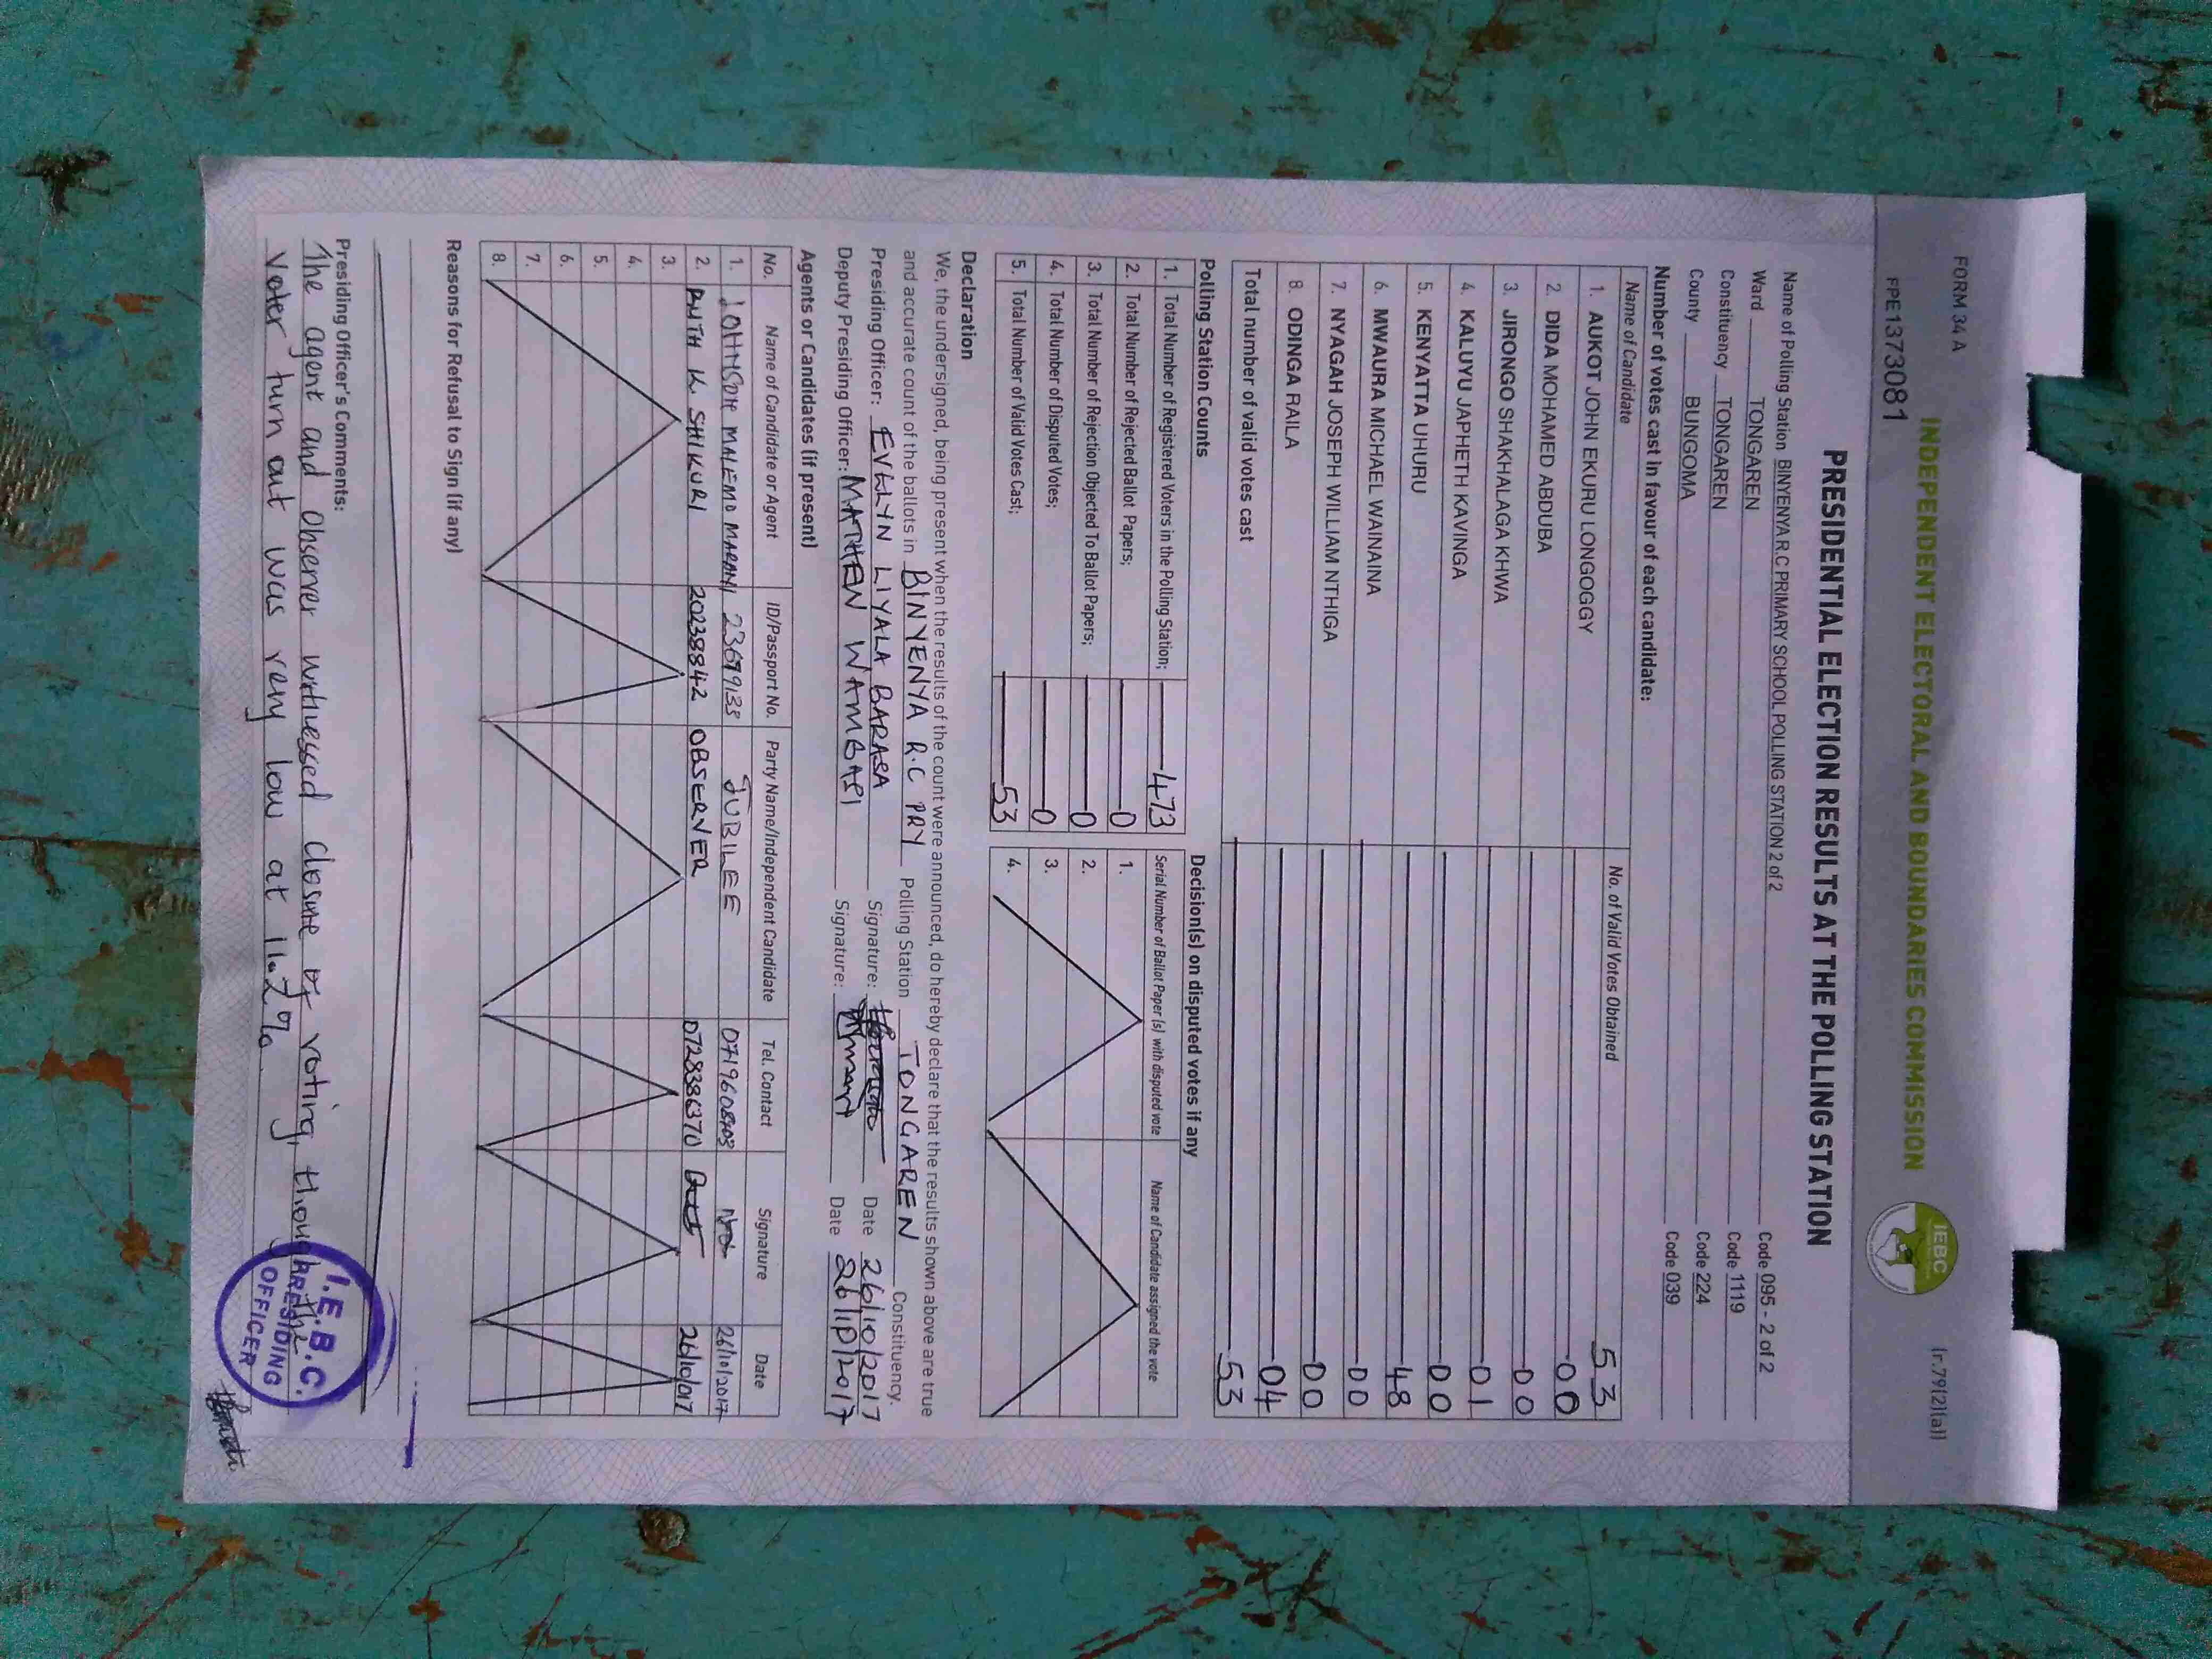 FORM 34 A
(r.79(2)(a))
INDEPENDENT ELECTORAL AND BOUNDARIES COMMISSION
IEBC
FPE1373081
PRESIDENTIAL ELECTION RESULTS AT THE POLLING STATION
Name of Polling Station BINYENYA R.C PRIMARY SCHOOL POLLING STATION 2 of 2 Code 095 - 2 of 2
Ward TONGAREN Code 1119
Constituency TONGAREN Code 224
County BUNGOMA Code 039
Number of votes cast in favour of each candidate:
Name of Candidate No. of Valid Votes Obtained 53
1. AUKOT JOHN EKURU LONGOGGY 00
2. DIDA MOHAMED ABDUBA 00
3. JIRONGO SHAKHALAGA KHWA 01
4. KALUYU JAPHETH KAVINGA 00
5. KENYATTA UHURU 48
6. MWAURA MICHAEL WAINAINA 00
7. NYAGAH JOSEPH WILLIAM NTHIGA 00
8. ODINGA RAILA 04
Total number of valid votes cast 53
Polling Station Counts
1. Total Number of Registered Voters in the Polling Station; 473
2. Total Number of Rejected Ballot Papers; 0
3. Total Number of Rejection Objected To Ballot Papers; 0
4. Total Number of Disputed Votes; 0
5. Total Number of Valid Votes Cast; 53
Decision(s) on disputed votes if any
Serial Number of Ballot Paper (s) with disputed vote Name of Candidate assigned the vote
1.
2.
3.
4.
Declaration
We, the undersigned, being present when the results of the count were announced, do hereby declare that the results shown above are true
and accurate count of the ballots in BINYENYA R.C PRY Polling Station TONGAREN Constituency.
Presiding Officer: EVELYN LIYALA BARASA Signature: Date 26/10/2017
Deputy Presiding Officer: MATHEW WAMBASI Signature: Date 26/10/2017
Agents or Candidates (if present)
No. Name of Candidate or Agent ID/Passport No. Party Name/Independent Candidate Tel. Contact Signature Date
1. JOHNSON MALEMO 23699133 JUBILEE 26/10/2017
2. RUTH K. SHIKURI 20238842 OBSERVER 0728386370 26/10/017
3.
4.
5.
6.
7.
8.
Reasons for Refusal to Sign (if any)
Presiding Officer's Comments:
The agent and Observer witnessed closure of voting, though the
voter turn out was very low at 11.2%.
I.E.B.C.
PRESIDING
OFFICER